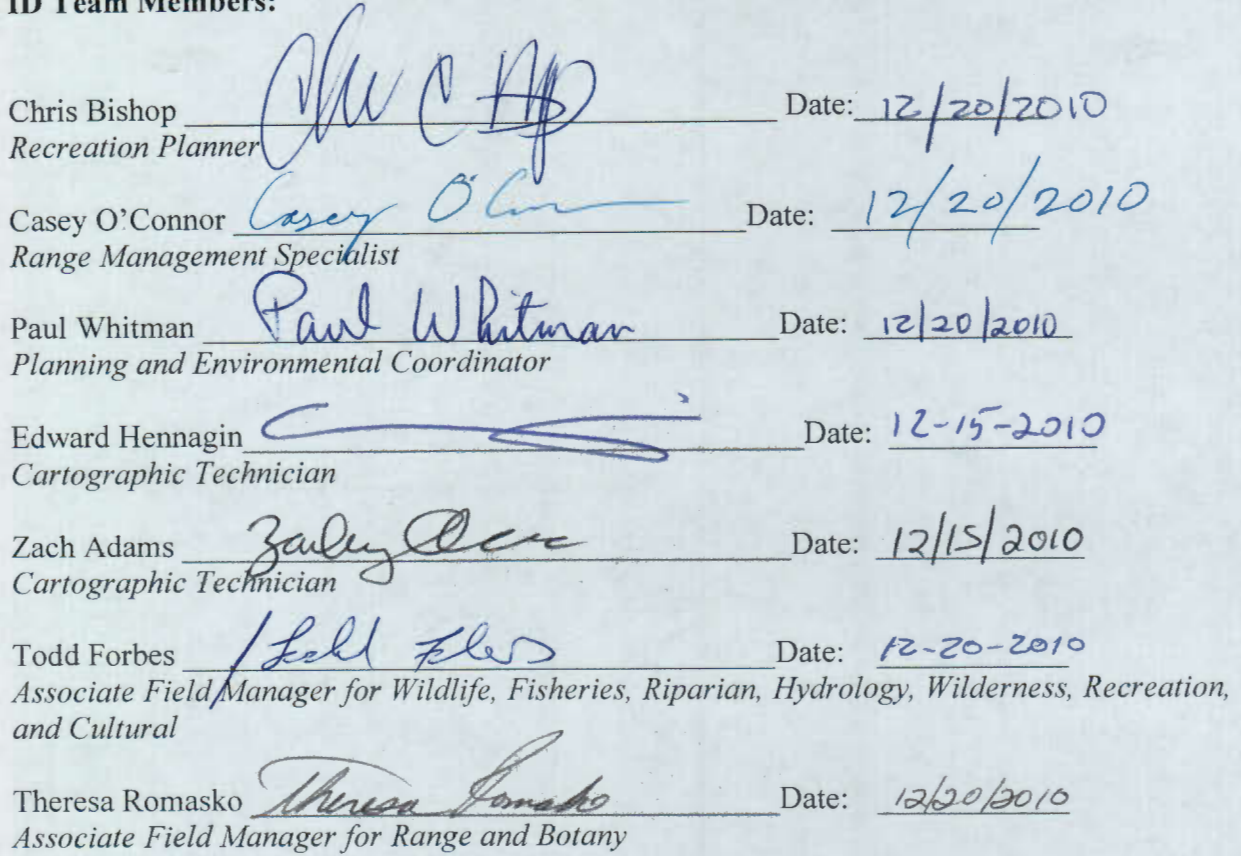 ID Team Members:
Chris Bishop Date: 12/20/2010
Recreation Planner
Casey O'Connor Casey O'Con Date: 12/20/2010
Range Management Specialist
Paul Whitman Paul Whitman Date: 12/20/2010
Planning and Environmental Coordinator
Edward Hennagin Date: 12-15-2010
Cartographic Technician
Zach Adams Date: 12/15/2010
Cartographic Technician
Todd Forbes Date: 12-20-2010
Associate Field Manager for Wildlife, Fisheries, Riparian, Hydrology, Wilderness, Recreation,
and Cultural
Theresa Romasko Theresa Romasko Date: 12/20/2010
Associate Field Manager for Range and Botany